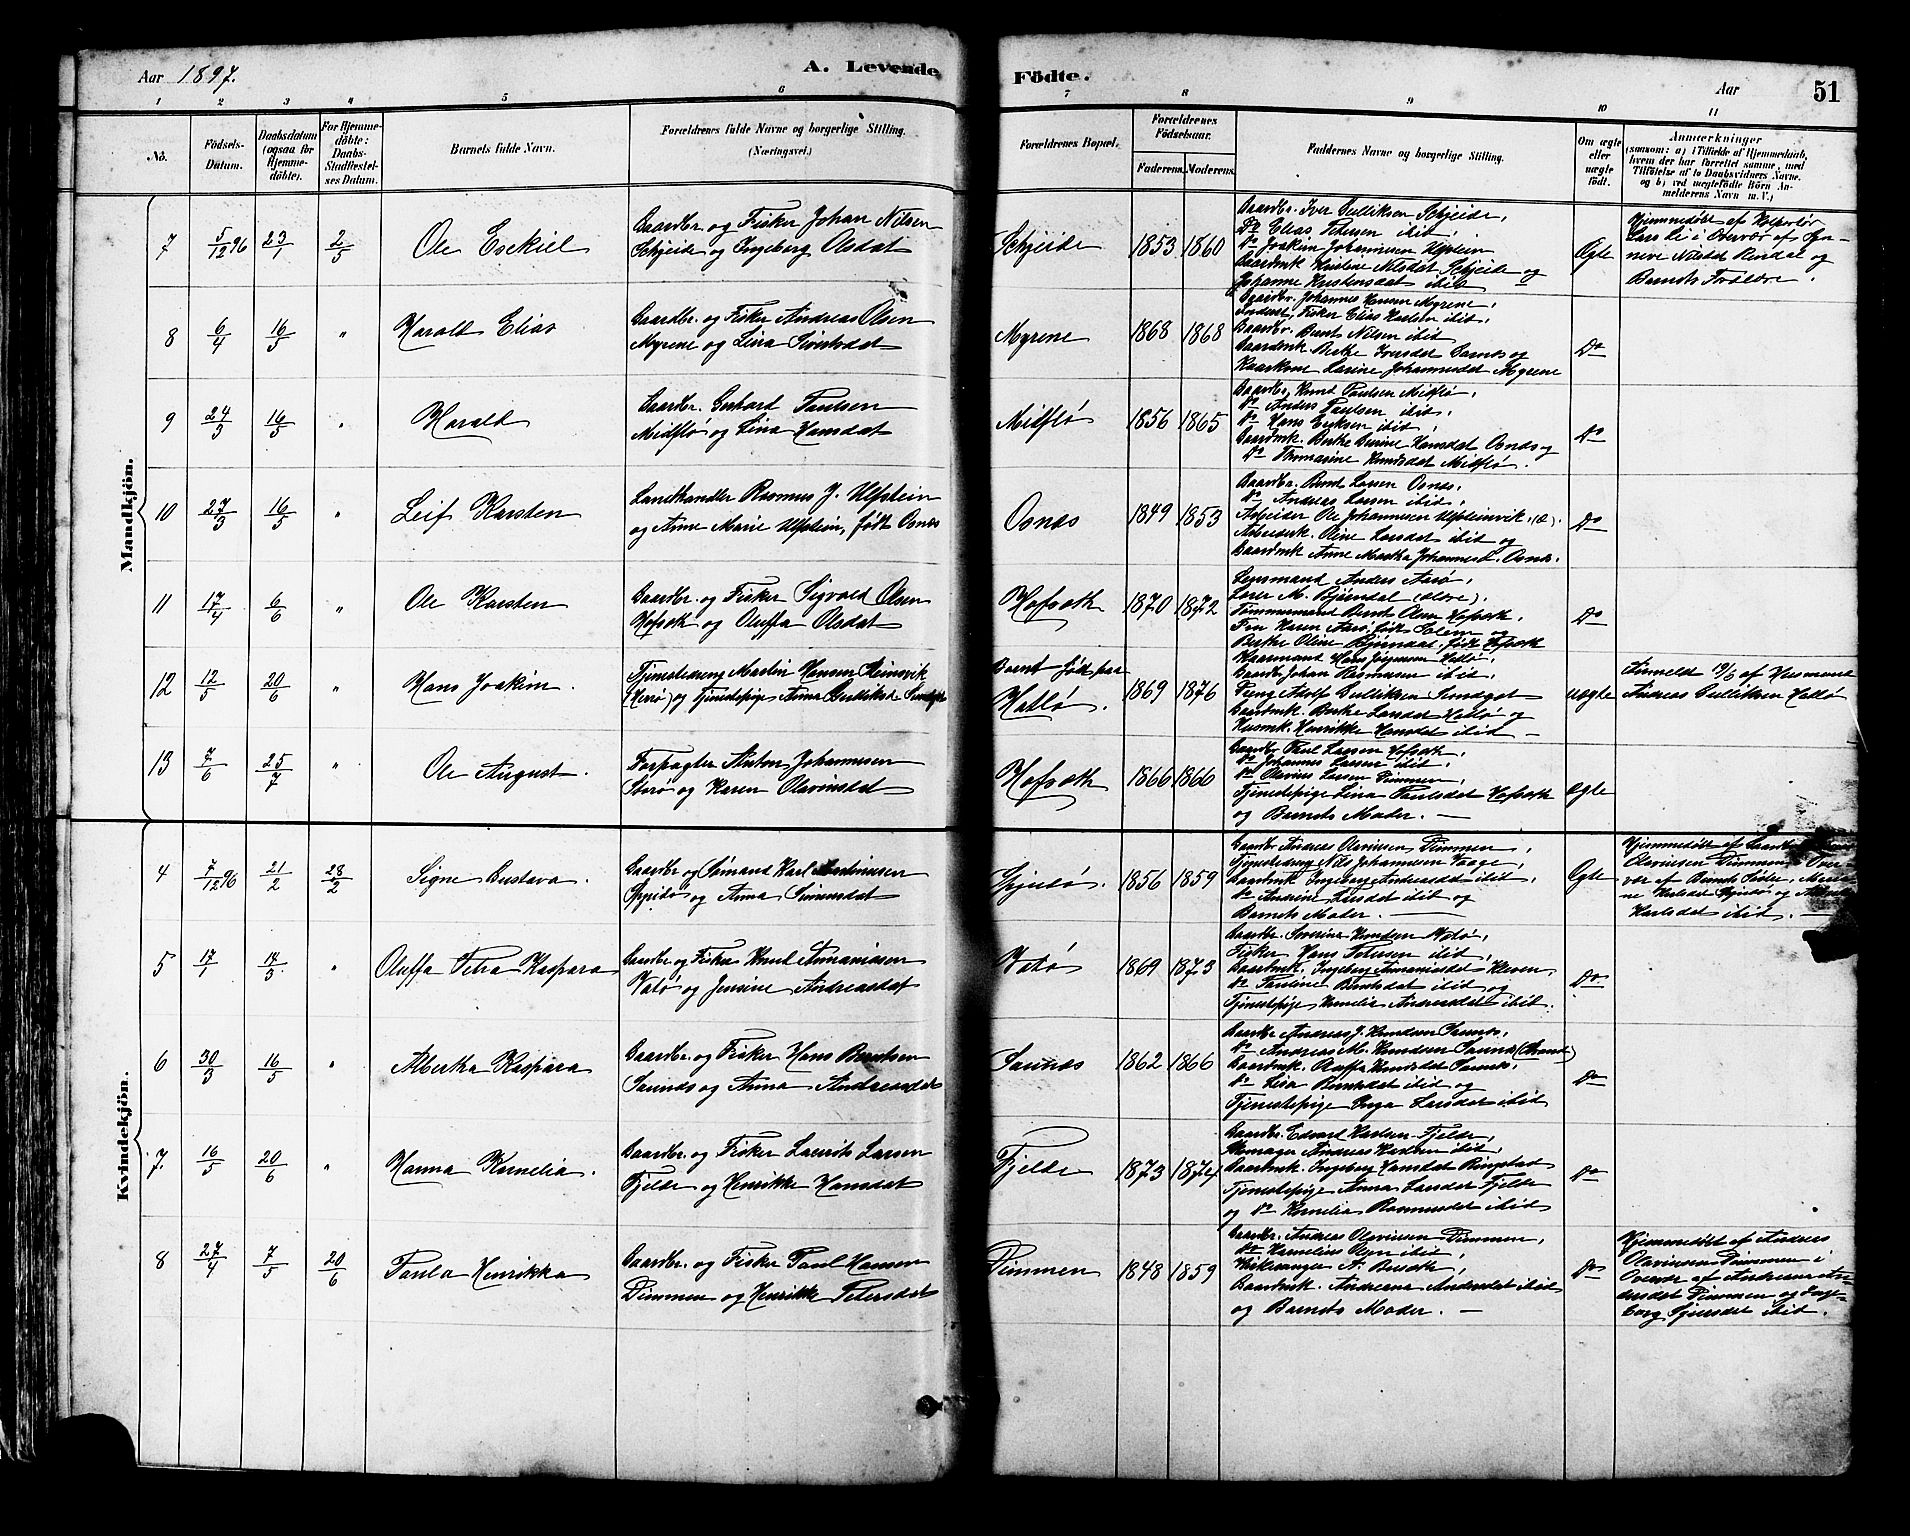 Aar 1897.
A. Levende
Födte.
Aar
51
1 2 3 4 5 6 7 8 9 10 11
No.
Födsels-Datum.
Daabsdatum (ogsaa for Hjemme-döbte).
For Hjemme-döbte: Daabs-Stadfæstel-ses Datum.
Barnets fulde Navn.
Forældrenes fulde Navne og borgerlige Stilling.
(Næringsvei.)
Forældrenes Bopæl.
Forældrenes Födselsaar.
Faderens. Moderens.
Faddernes Navne og borgerlige Stilling.
Om ægte eller uægte födt.
Anmærkninger
(saasom: a) i Tilfælde af Hjemmedaab, hvem der har forrettet samme, med Tilföielse af to Daabsvidners Navne. og b) ved uægtefödte Börn An-melderens Navn m. V.)
Mandkjön.
7 5/12 96 23/1 2/5 Ole Esekiel
Gaardbr. og Fisker Johan Nilsen
Schjeide og Ingeberg Olsdat
Schjeide 1853 1860
Gaardbr. Iver Gulliksen Schjeide,
Do Elias Petersen ibid,
Do Joakim Johannesen Ulfstein
Gaardmk Kristene Nilsdat Schjeide og
Johanne Kristensdat ibid
Ægte
Hjemmedöbt af
Barnets Forældre.
8 6/4 16/5 " Harald Elias
Gaardbr. og Fisker Andreas Olsen
Myrene og Lina Simensdat
Myrene 1868 1868
Gaardbr. Johannes Hansen Myrene,
Inderst, Fisker Elias Karlsen ibid,
Gaardbr. Bernt Nilsen ibid
Gaardmk Berthe Iversdat Saunes og
Kaarkone Larine Johannesdat Myrene
Do
9 24/3 16/5 " Harald
Gaardbr. Gerhard Paulsen
Midflø og Lina Hansdat
Midflø 1856 1865
Gaardbr. Knud Paulsen Midflø,
Do Anders Paulsen ibid,
Do Hans Eriksen ibid,
Gaardmk. Berthe Serine Hansdat Osnes og
Do Thomasine Knudsdat Midflø.
Do
10 27/3 16/5 " Leif Karsten
Landhandler Rasmus J. Ulfstein
og Anne Marie Ulfstein, født Osnes
Osnæs 1849 1853
Gaardbr. Bernt Larsen Osnes,
Do Andreas Larsen ibid,
Arbeider Ole Johannesen Ulfsteinvik,
Arbeidsk. Oline Larsdat ibid og
Gaardmk Anne Martha Johannesd. Osnes.
Do
11 17/4 6/6 " Ole Karsten
Gaardbr. og Fisker Sigvald Olsen
Hofseth og Oluffa Olsdat
Hofseth 1870 1872
Lensmand Anders Aarø,
Lærer M. Bjørndal
Tømmermand Bernt Olsen Hofseth,
Fru Karen Aarø, født Solem og
Berthe Oline Bjørndal, født Hofseth
Do
12 12/5 20/6 " Hans Joakim.
Tjenestedreng Martin Hansen Remevik
(Herø) og Tjenestepige Anna Gulliksd
Barnet født paa
Hatlø. 1869 1876
Kaarmand Hans Jørgensen Hatlø,
Gaardbr. Johan Rasmusen ibid,
Peng Adolf Gulliksen
Gaardmk. Berthe Larsdat Hatlø og
Husmk. Henrikke Hansdat ibid —
uægte
Anmeldt 19/6 af Husmand
Andreas Gulliksen Hatlø
13 7/6 25/7 " Ole August.
Forpagter Anton Johannesen
Storø og Karen Olavinsdat
Hofseth 1866 1866
Gaardbr Paul Larsen Hofseth,
Do Johannes Larsen ibid,
Do Olavius Larsen Dimmen,
Tjenestepige Lina Paulsdat Hofseth
og Barnets Moder. —
Ægte
Kvindekjön.
4 7/12 96 21/2 28/2 Signe Gustava.
Gaardbr og Sømand Karl Martinusen
Gjerdø og Anna Simensdat
Gjerdø. 1856 1859
Gaardbr Andreas Olavinsen Dimmen,
Tjenestedreng Nils Johannesen Vaage,
Gaardmk Ingeborg Andreasdat ibid,
Do Andrine Larsdat ibid og
Barnets Moder. —
Ægte
Hjemmedøbt af
Olavinsen Dimmen i Over-
vær af Barnets Fader,
Karlsdat ibid. —
5 17/1 14/3 " Oluffa Petra Kaspara
Gaardbr og Fisker Knud Ananiassen
Vatø og Jensine Andreasdat
Vatø 1869 1873
Gaardbr. Severin Knudsen Vatø,
Fisker Hans Petersen ibid,
Gaardmk. Ingeborg Ananiasdat Kleven
Do Pauline Berntsdat ibid og
Tjenestepige Kornelia Andreasdat ibid.
Do
6 30/3 16/5 " Albertha Kaspara
Gaardbr. og Fisker Hans Berntsen
Saunæs og Anna Andreasdat
Saunæs 1862 1866
Gaardbr Andreas J. Knudsen Saunes,
Do Andreas M. Knudsen Saunes (Strand)
Gaardmk. Oluffa Knudsdat Saunes,
Do Lisa Berntsdat ibid og
Tjenestepige Inga Larsdat ibid
Do
7. 16/5 20/6 " Hanna Kornelia.
Gaardbr. og Fisker Laurits Larsen
Fjelde og Henrikke Hansdat
Fjelde 1873 1874
Gaardbr. Edvard Karlsen Fjelde,
Andreas Karlsen ibid,
Gaardmk. Ingeborg Hansdat Ringstad
Tjenestepige Anna Larsdat Fjelde
og Do Kornelia Rasmusdat ibid
Do
8 27/4 7/5 20/6 Paula Henrikka
Gaardbr. og Fisker Paul Hansen
Dimmen og Henrikke Petersdat
Dimmen 1848 1859
Gaardbr. Andreas Olavinsen Dimmen,
Do Kornelius Olsen ibid,
Kirkesanger A.
Gaardmk. Andreana Andersdat ibid
og Barnets Moder. —
Do
Hjemmedøbt af Andreas
Olavinsen Dimmen i
Overvær af Andreana An-
dersdat Dimmen og Inge-
borg Sjursdat ibid.